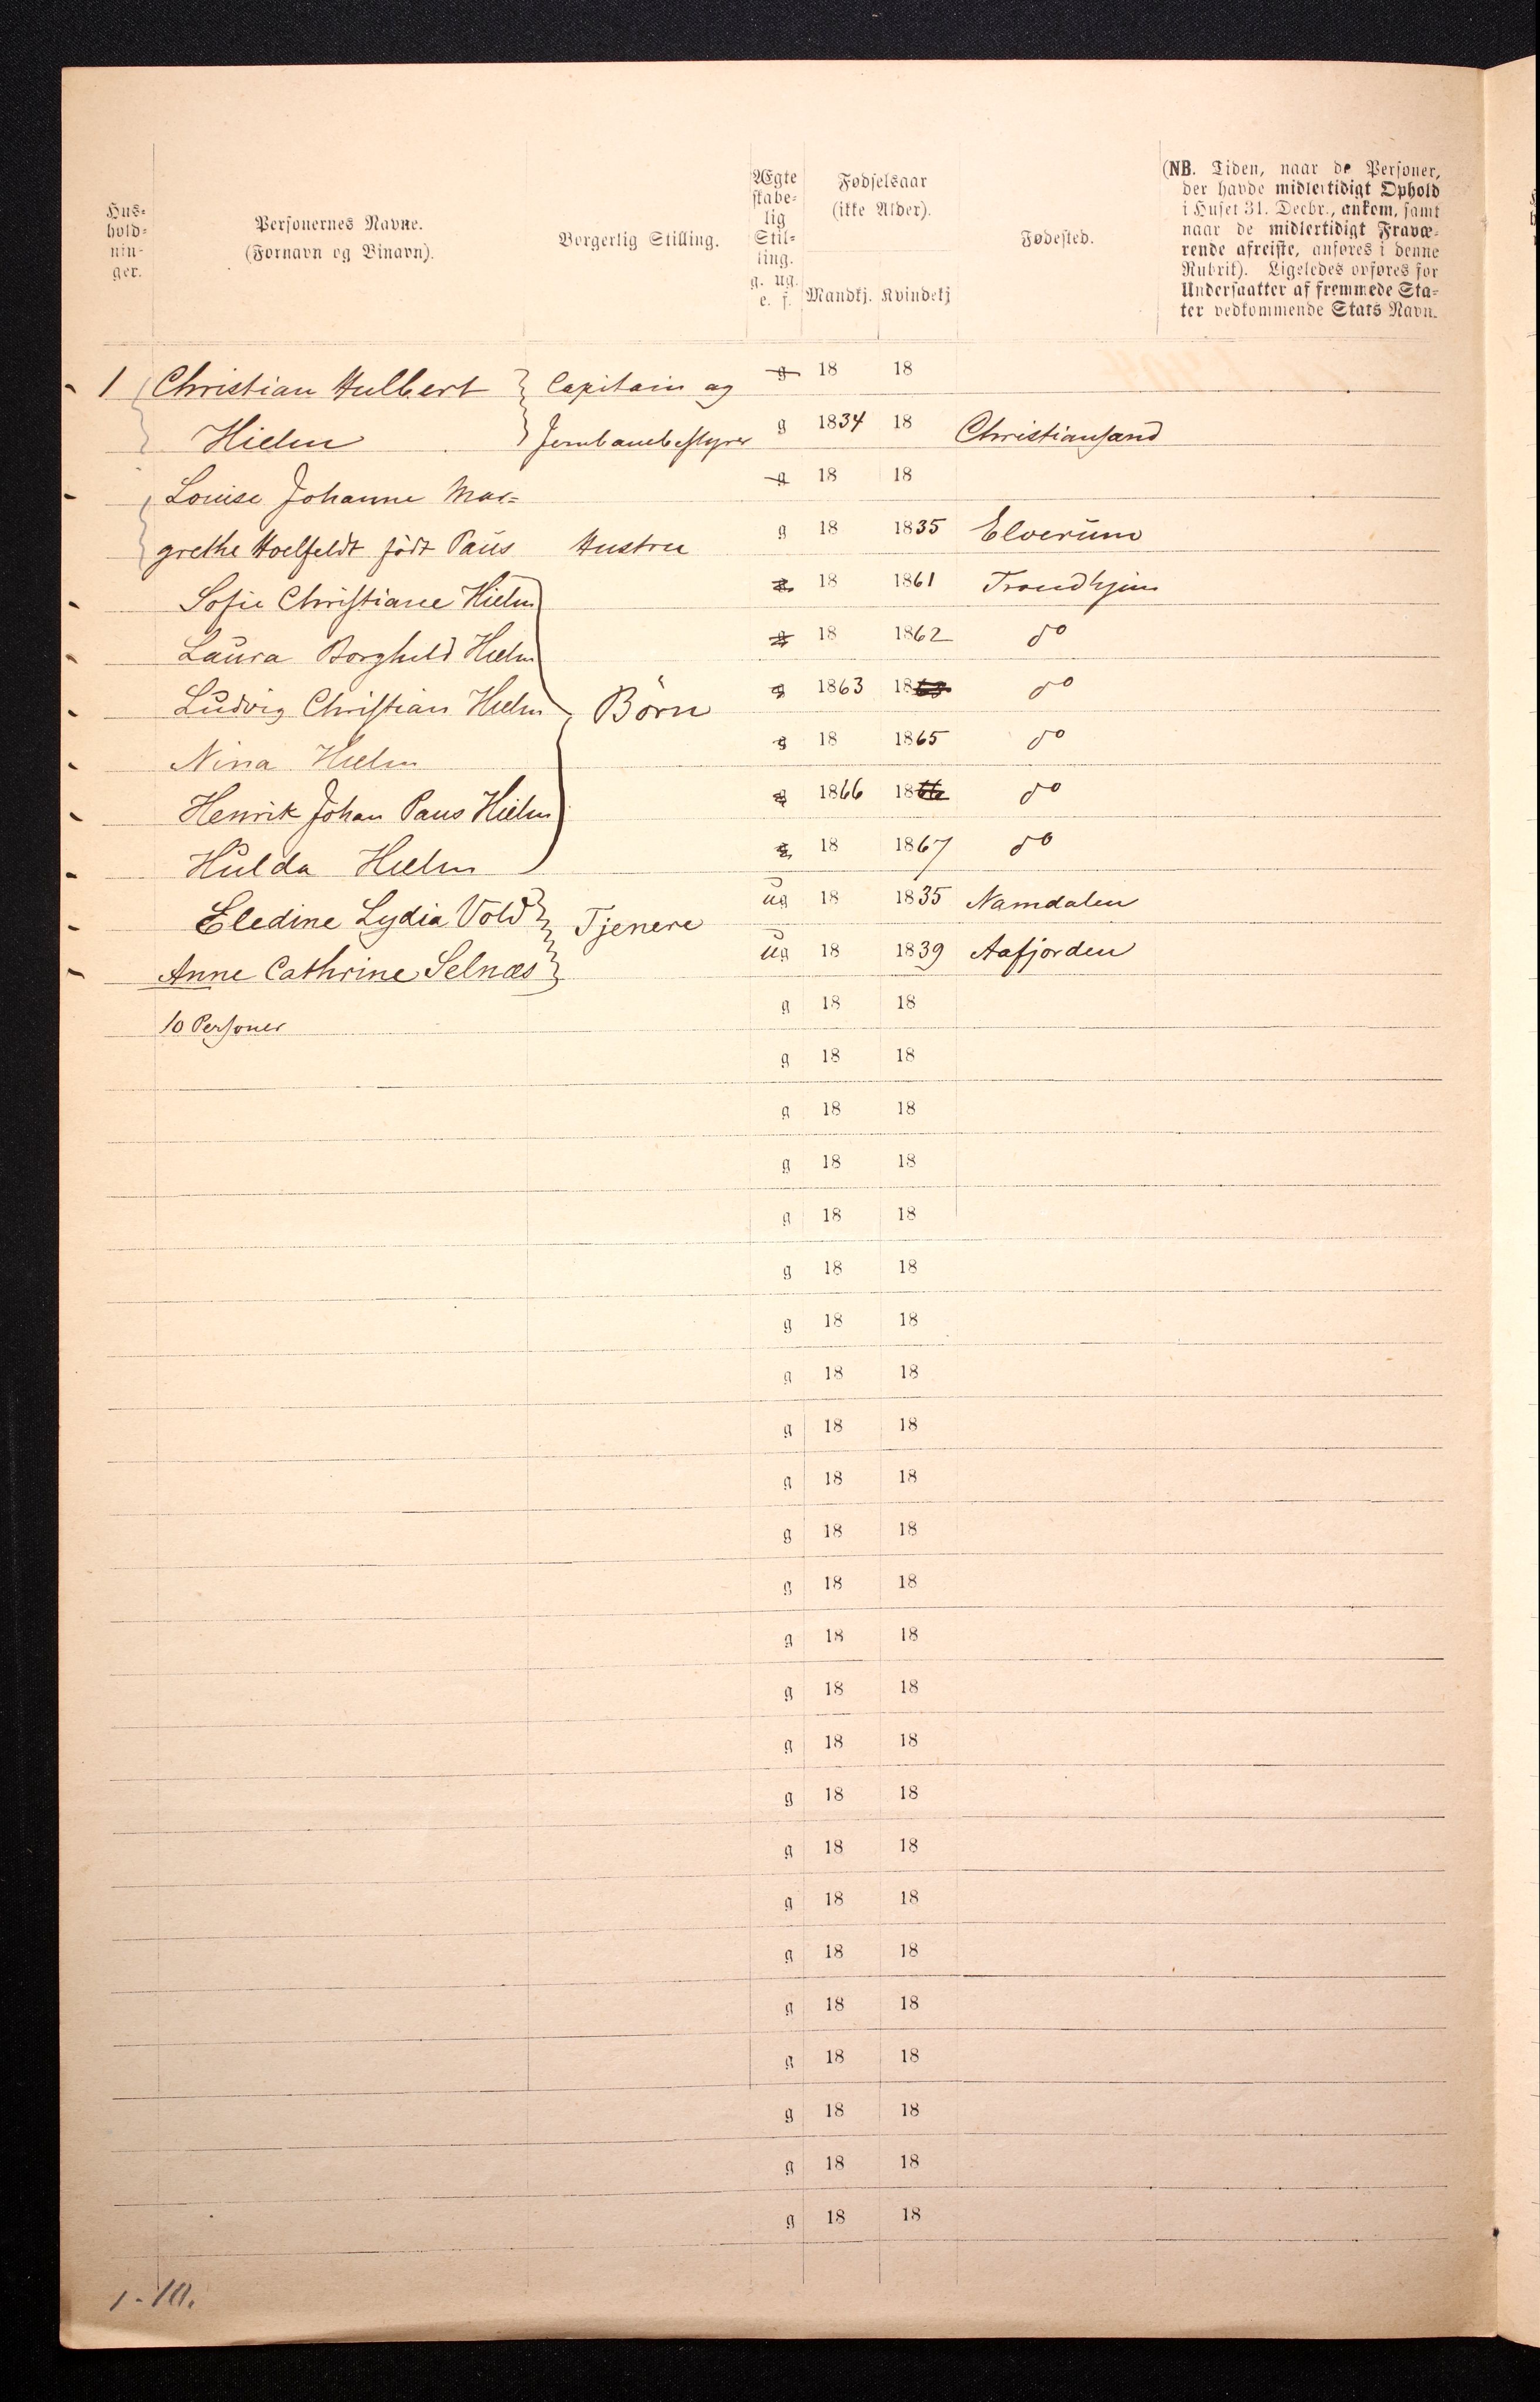 Hus-
hold-
nin-
ger.
Personernes Navne.
(Fornavn og Binavn).
Borgerlig Stilling.
Ægte
skabe-
lig
Stil-
ling.
g. ug.
e. f.
Fødselsaar
(ikke Alder).
Mandkj. Kvindekj
Fødested.
(NB. Tiden, naar de Personer,
der havde midlertidigt Ophold
i Huset 31. Decbr., ankom, samt
naar de midlertidigt Fravæ-
rende afreiste, anføres i denne
Rubrik). Ligeledes opføres for
Undersaatter af fremmede Sta-
ter vedkommende Stats Navn.
1 Christian Hulbert Capitain og g 18 18
Hielm Jernbanebestyrer g 1834 18 Christiansand
Louise Johanne Mar= g 18 18
grethe Hoelfeldt født Paus Hustru g 18 1835 Elverum
Sofie Christiane Hielm 18 1861 Trondhjem
Laura Borghild Hielm g 18 1862 do
Ludvig Christian Hielm Börn g 1863 1863 do
Nina Hielm g 18 1865 do
Henrik Johan Paus Hielm g 1866 1866 do
Hulda Hielm g 18 1867 do
Eledine Lydia Vold Tjenere ug 18 1835 Namdalen
Anne Cathrine Selnæs ug 18 1839 Aafjorden
10 Personer g 18 18
g 18 18
g 18 18
g 18 18
g 18 18
g 18 18
g 18 18
g 18 18
g 18 18
g 18 18
g 18 18
g 18 18
g 18 18
g 18 18
g 18 18
g 18 18
g 18 18
g 18 18
g 18 18
g 18 18
g 18 18
g 18 18
g 18 18
g 18 18
1-10.